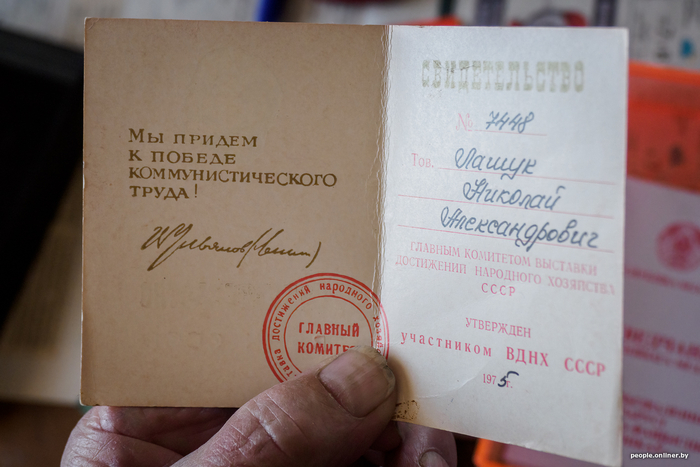 Мы придем
к победе
коммунистического
труда!
В Ульянов (Ленин)
выставка достижений народного хозяйства
ГЛАВНЫЙ
КОМИТЕТ
СВИДЕТЕЛЬСТВО
№ 7448
Тов. Лащук
Николай
Александрович
ГЛАВНЫМ КОМИТЕТОМ ВЫСТАВКИ
ДОСТИЖЕНИЙ НАРОДНОГО ХОЗЯЙСТВА
СССР
УТВЕРЖДЕН
участником ВДНХ СССР
1975г.
people.onliner.by